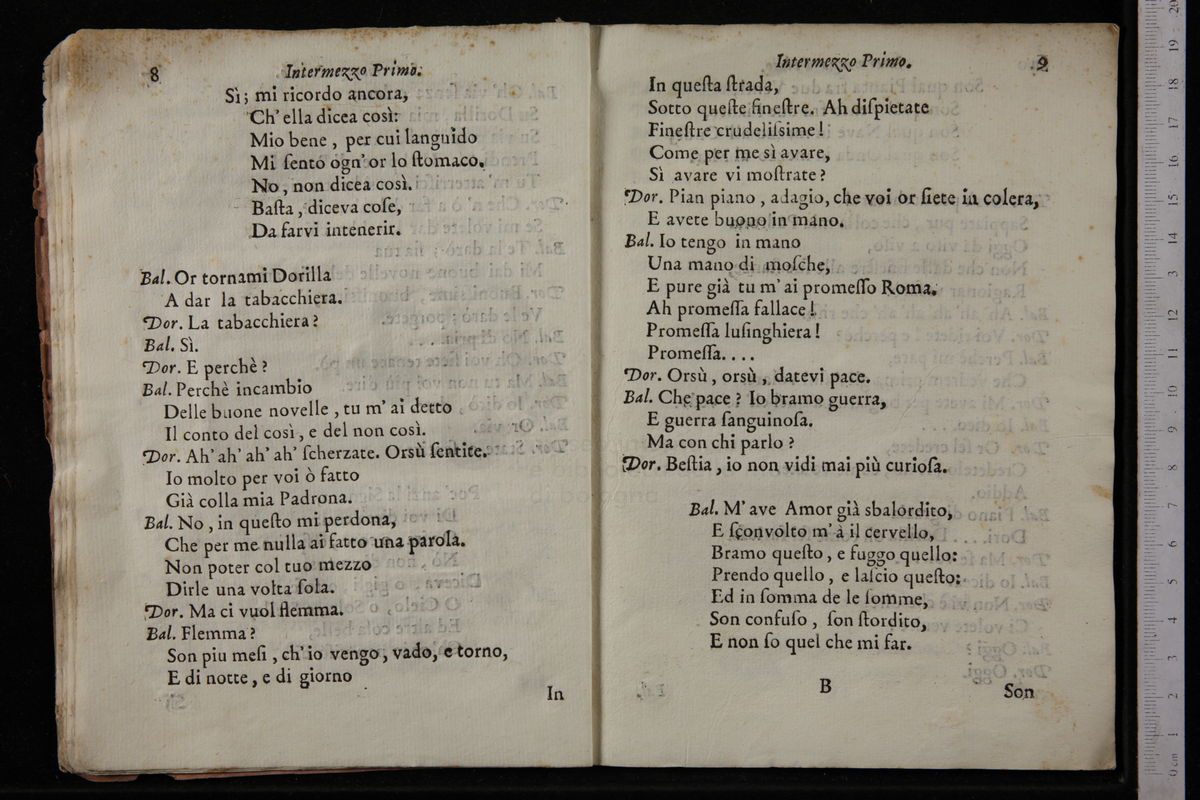 8 Intermezzo Primo.
Sì; mi ricordo ancora,
Ch' ella dicea così:
Mio bene, per cui languido
Mi ſento ogn' or lo ſtomaco.
No, non dicea così.
Baſta, diceva coſe,
Da farvi intenerir.
Bal. Or tornami Dorilla
A dar la tabacchiera.
Dor. La tabacchiera?
Bal. Sì.
Dor. E perchè?
Bal. Perchè incambio
Delle buone novelle, tu m' ai detto
Il conto del così, e del non così.
Dor. Ah' ah' ah' ah' ſcherzate. Orsù ſentite.
Io molto per voi ò fatto
Già colla mia Padrona.
Bal. No, in queſto mi perdona,
Che per me nulla ai fatto una parola.
Non poter col tuo mezzo
Dirle una volta ſola.
Dor. Ma ci vuol flemma.
Bal. Flemma?
Son piu meſi, ch' io vengo, vado, e torno,
E di notte, e di giorno
In
Intermezzo Primo. 9
In queſta ſtrada,
Sotto queſte fineſtre. Ah diſpietate
Fineſtre crudeliſsime!
Come per me sì avare,
Sì avare vi moſtrate?
Dor. Pian piano, adagio, che voi or ſiete in colera,
E avete buono in mano.
Bal. Io tengo in mano
Una mano di moſche,
E pure già tu m' ai promeſſo Roma.
Ah promeſſa fallace!
Promeſſa luſinghiera!
Promeſſa....
Dor. Orsù, orsù, datevi pace.
Bal. Che pace? Io bramo guerra,
E guerra ſanguinoſa.
Ma con chi parlo?
Dor. Beſtia, io non vidi mai più curioſa.
Bal. M' ave Amor già sbalordito,
E ſconvolto m' à il cervello,
Bramo queſto, e fuggo quello:
Prendo quello, e laſcio queſto:
Ed in ſomma de le ſomme,
Son confuſo, ſon ſtordito,
E non ſo quel che mi far.
B Son